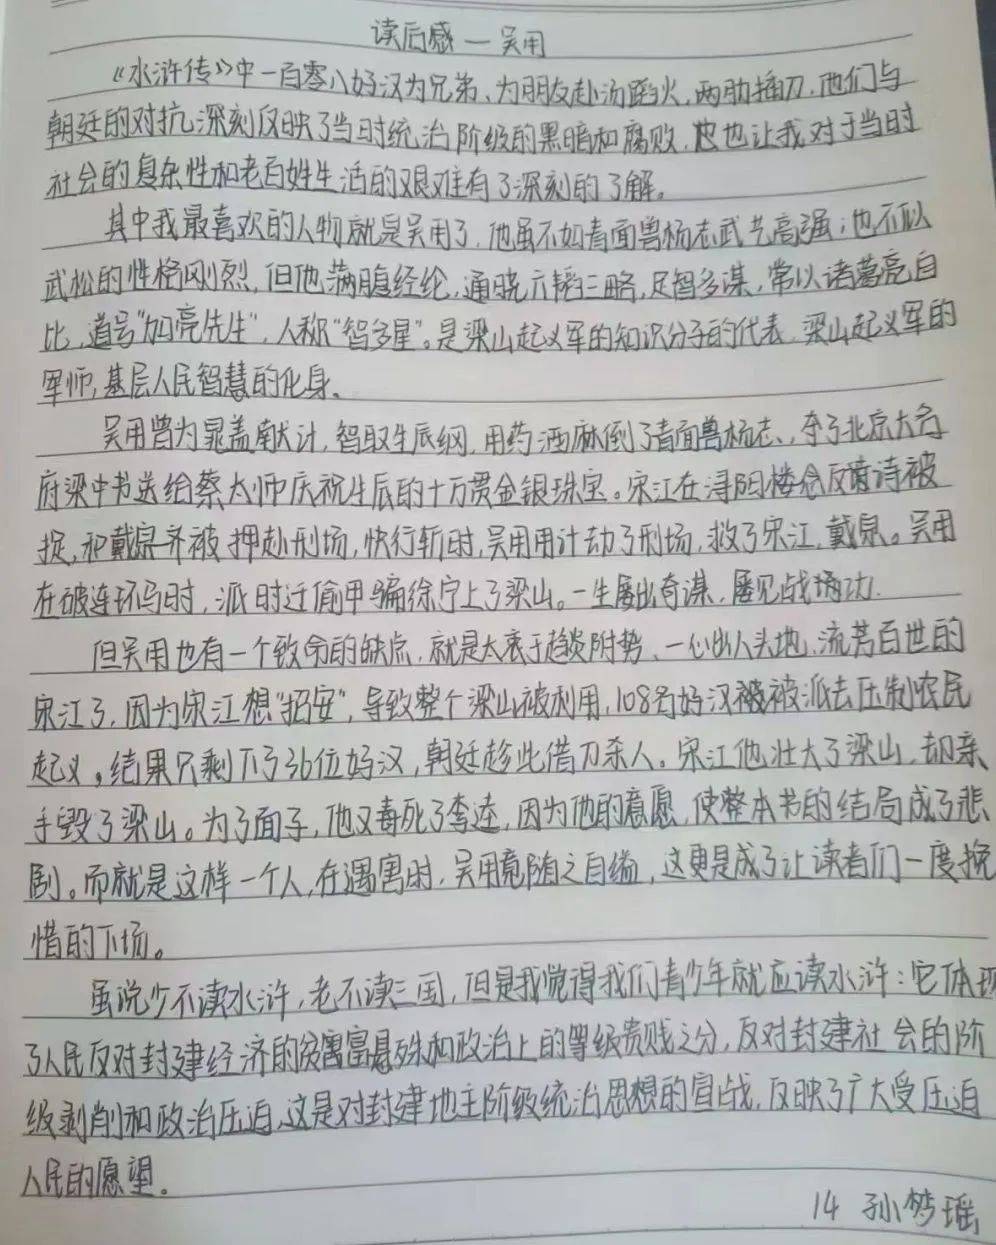 读后感—吴用
《水浒传》中一百零八好汉为兄弟、为朋友赴汤蹈火,两肋插刀,他们与
朝廷的对抗,深刻反映了当时统治阶级的黑暗和腐败,也让我对于当时
社会的复杂性和老百姓生活的艰难有了深刻的了解。
其中我最喜欢的人物就是吴用了,他虽不如青面兽杨志武艺高强;也不似
武松的性格刚烈,但他满腹经纶,通晓六韬三略,足智多谋,常以诸葛亮自
比,道号"加亮先生",人称"智多星"。是梁山起义军的知识分子的代表,梁山起义军的
军师,基层人民智慧的化身。
吴用曾为晁盖献计,智取生辰纲,用药酒麻倒了青面兽杨志,夺了北京大名
府梁中书送给蔡太师庆祝生辰的十万贯金银珠宝。宋江在浔阳楼念反诗被
捉,和戴泉齐被押赴刑场,快行斩时,吴用用计劫了刑场,救了宋江,戴泉。吴用
在破连环马时,派时迁偷甲骗徐宁上了梁山。一生屡出奇谋,屡见战功.
但吴用也有一个致命的缺点,就是太衷于趋炎附势、一心出人头地,流芳百世的
宋江了,因为宋江想"招安",导致整个梁山被利用,108名好汉被被派去压制农民
起义。结果只剩下了36位好汉,朝廷趁此借刀杀人。宋江他壮大了梁山,却亲
手毁了梁山。为了面子,他又毒死了李逵,因为他的意愿,使整本书的结局成了悲
剧。而就是这样一个人,在遇害时,吴用竟随之自缢,这更是成了让读者们一度挽
惜的下场。
虽说少不读水浒,老不读三国,但是我觉得我们青少年就应读水浒:它体现
了人民反对封建经济的贫富悬殊和政治上的等级贵贱之分,反对封建社会的阶
级剥削和政治压迫,这是对封建地主阶级统治思想的宣战,反映了广大受压迫
人民的愿望。
14 孙梦瑶